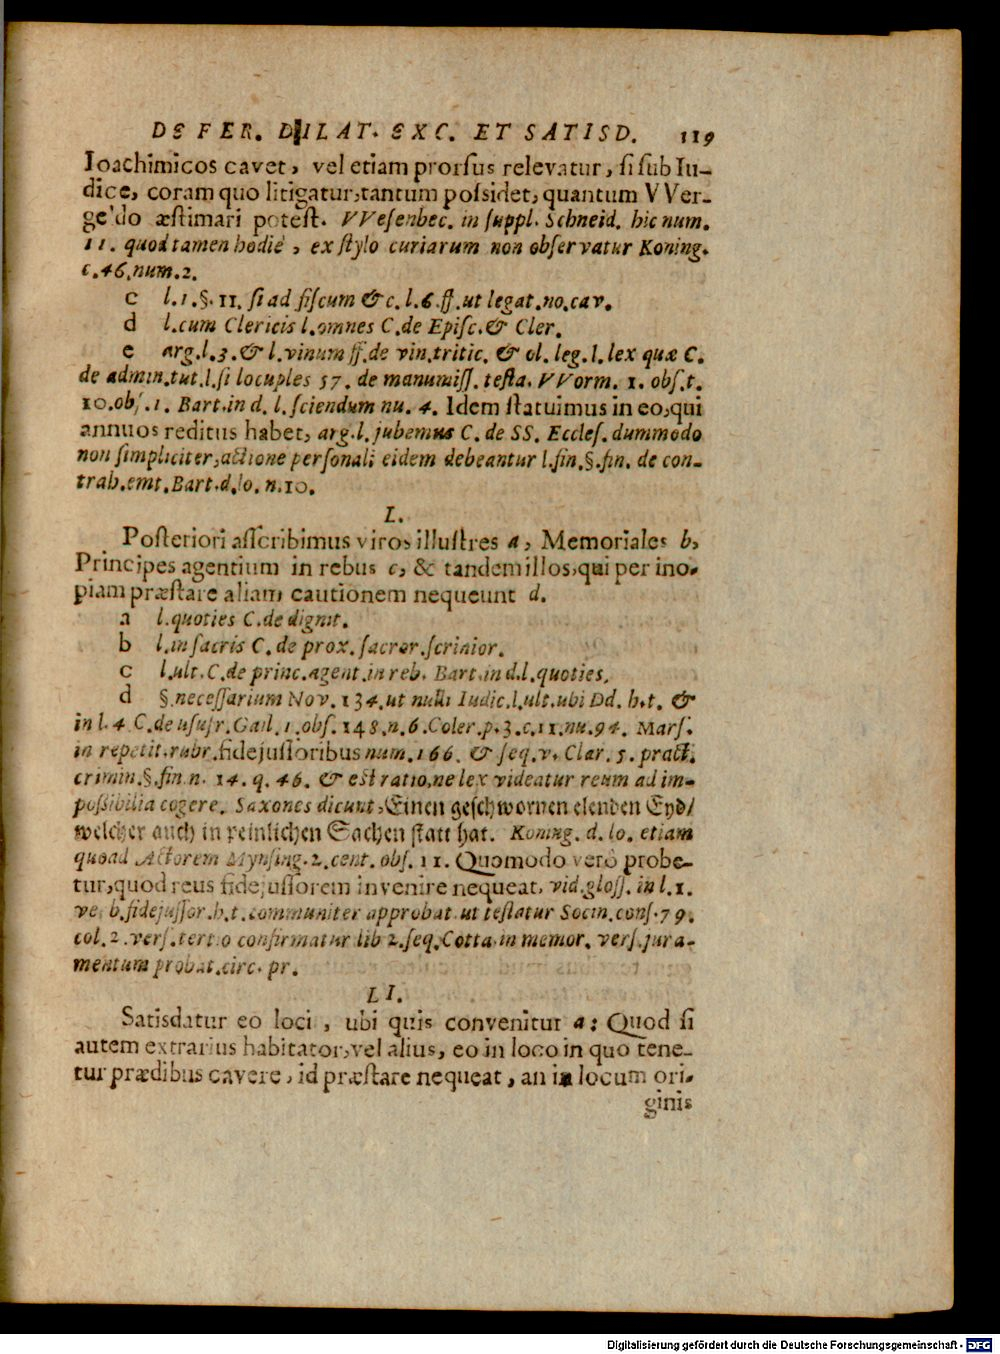 DE FER. DILAT. EXC. ET SATISD. 119
Ioachimicos cavet, vel etiam prorſus relevatur, ſi ſub Iu-
dice, coram quo litigatur, tantum poſsidet, quantum VVer-
geldo æſtimari poteſt. VVeſenbec. in ſuppl. Schneid. hic num.
11. quod tamen hodiè, ex ſtylo curiarum non obſervatur Koning.
c. 46. num. 2.
c l. 1. §. 11. ſi ad fiſcum & c. l. 6. ff. ut legat. no. cav.
d l. cum Clericis l. omnes C. de Epiſc. & Cler.
e arg. l. 3. & l. vinum ff. de vin. tritic. & ol. leg. l. lex quæ C.
de admin. tut. l. ſi locuples 57. de manumiſſ. teſta. VVorm. 1. obſ. t.
10. obſ. 1. Bart. in d. l. ſciendum nu. 4. Idem ſtatuimus in eo, qui
annuos reditus habet, arg. l. jubemus C. de SS. Eccleſ. dummodo
non ſimpliciter, actione perſonali eidem debeantur l. fin. §. fin. de con-
trah. emt. Bart. d. lo. n. 10.
L.
Poſteriori aſſcribimus viros illuſtres a, Memoriales b,
Principes agentium in rebus c, & tandem illos, qui per ino-
piam præſtare aliam cautionem nequeunt d.
a l. quoties C. de dignit.
b l. in ſacris C. de prox. ſacror. ſcrinior.
c l. ult. C. de princ. agent. in reb. Bart. in d. l. quoties.
d §. neceſſarium Nov. 134. ut nulli Iudic. l. ult. ubi Dd. h. t. &
in l. 4 C. de uſufr. Gail. 1. obſ. 148. n. 6. Coler. p. 3. c. 11. nu. 94. Marſ.
in repetit. rubr. fidejuſſoribus num. 166. & ſeq. v. Clar. 5. pract.
crimin. §. fin. n. 14. q. 46. & eſt ratio, ne lex videatur reum ad im-
poſſibilia cogere. Saxones dicunt, Einen geſchwornen elenden Eyd/
welcher auch in peinlichen Sachen ſtatt hat. Koning. d. lo. etiam
quoad Actorem Mynſing. 2. cent. obſ. 11. Quomodo verò probe-
tur, quod reus fidejuſſorem invenire nequeat, vid. gloſſ. in l. 1.
verb. fidejuſſor. h. t. communiter approbat. ut teſtatur Socin. conſ. 79.
col. 2. verſ. tertio confirmatur lib 2. ſeq. Cotta in memor. verſ. jura-
mentum probat. circ. pr.
LI.
Satisdatur eo loci, ubi quis convenitur a: Quod ſi
autem extrarius habitator, vel alius, eo in loco in quo tene-
tur prædibus cavere, id præſtare nequeat, an in locum ori-
ginis
Digitalisierung gefördert durch die Deutsche Forschungsgemeinschaft - DFG